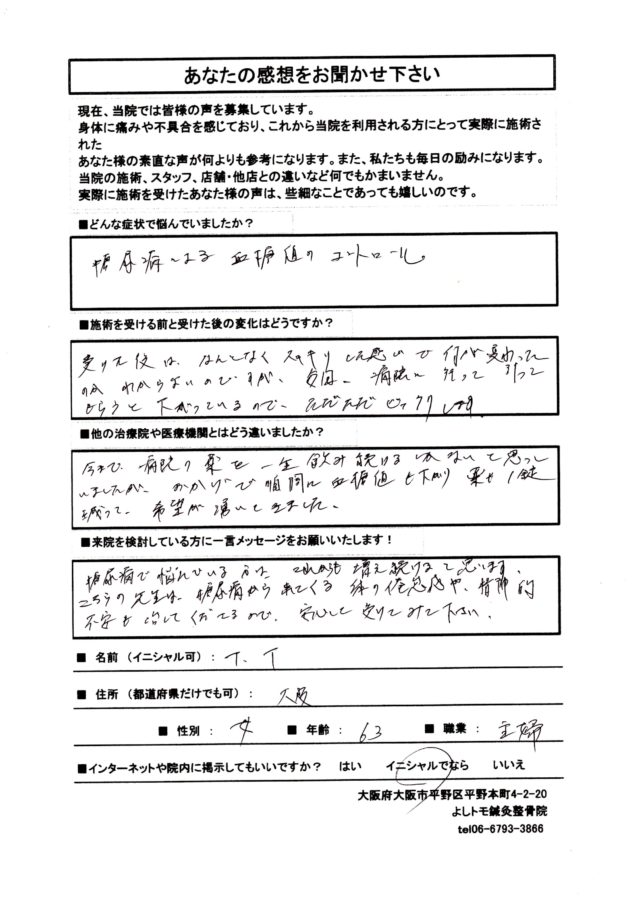 あなたの感想をお聞かせ下さい
現在、当院では皆様の声を募集しています。
身体に痛みや不具合を感じており、これから当院を利用される方にとって実際に施術さ
れた
あなた様の素直な声が何よりも参考になります。また、私たちも毎日の励みになります。
当院の施術、スタッフ、店舗・他店との違いなど何でもかまいません。
実際に施術を受けたあなた様の声は、些細なことであっても嬉しいのです。
■どんな症状で悩んでいましたか？
糖尿病による 血糖値のコントロール。
■施術を受ける前と受けた後の変化はどうですか？
受けた後は、なんとなくスッキリした感じで何が変わった
のか わからないのですが、 病院に行って 計って
もらうと下がっているので、ただただビックリします。
■他の治療院や医療機関とはどう違いましたか？
今まで、病院の薬を一生飲み続けるしかないと思って
いましたが、おかげで順調に血糖値も下がり 薬も1錠
減って、希望が湧いてきました。
■来院を検討している方に一言メッセージをお願いいたします！
糖尿病で悩んでいる方は、これからも増え続けると思います。
こちらの先生は、糖尿病からきてくる体の倦怠感や、精神的
不安も治してくださるので、安心して受けてみて下さい。
■ 名前（イニシャル可）： T. T
■ 住所（都道府県だけでも可）： 大阪
■ 性別： 女 ■ 年齢： 63 ■ 職業： 主婦
■インターネットや院内に掲示してもいいですか？ はい イニシャルでなら いいえ
大阪府大阪市平野区平野本町4-2-20
よしトモ鍼灸整骨院
tel06-6793-3866